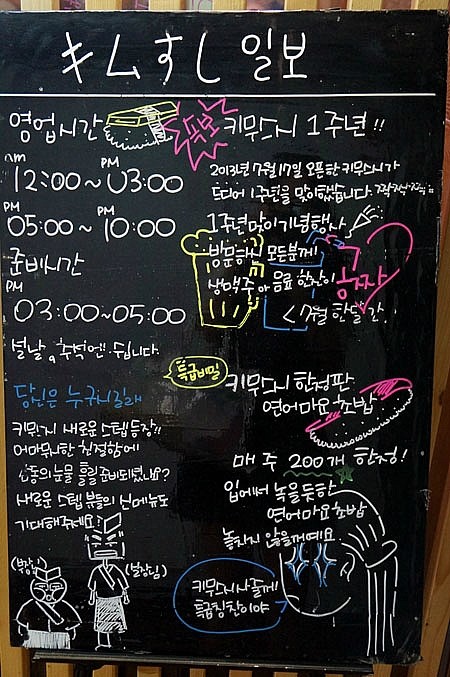 キムすし 일보
영업시간
am 12:00~ PM 03:00
PM 05:00~ PM 10:00
준비시간
PM 03:00~05:00
설날, 추석엔 쉽니다.
당신은 누구시길래
키무스시 새로운 스텝등장!!
어마무시한 친절함에
감동의 눈물 흘릴 준비되셨나요?
새로운 스텝 분들의 신메뉴도
기대해주세요
(부장님)
(실장님)
특보
키무스시 1주년!!
2013년 7월17일 오픈한 키무스시가
드디어 1주년을 맞이했습니다. 짝짝짝짝짝
1주년맞이기념행사
방문하신 모든분께!
생맥주 or 음료 한잔이
공짜
<7월 한달간
특급비밀
키무스시 한정판
연어마요초밥
매주 200개 한정!
입에서 녹을듯한
연어마요초밥
놓치지 않을꺼예요
키무스시사줄께!
특급칭찬이야